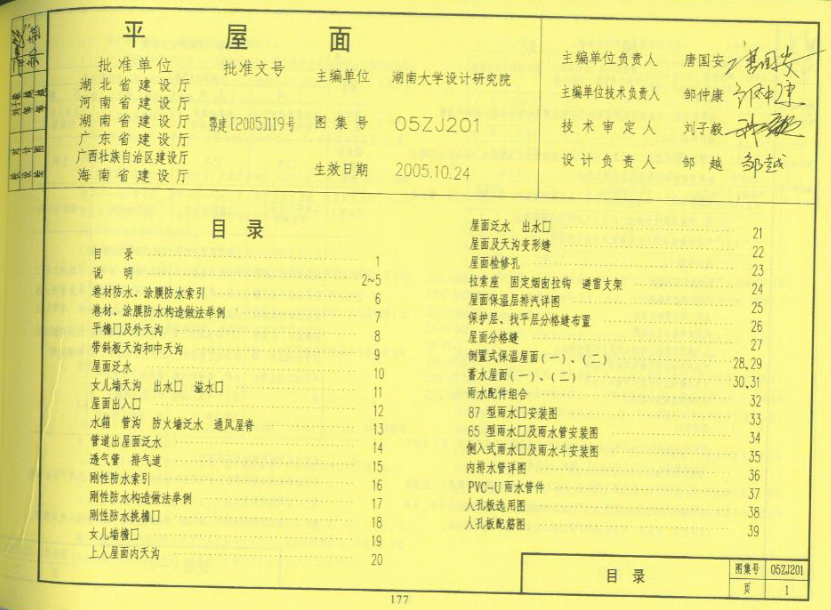 平 屋 面
批准单位 批准文号
湖北省建设厅
河南省建设厅
湖南省建设厅 鄂建[2005]119号
广东省建设厅
广西壮族自治区建设厅
海南省建设厅
主编单位 湖南大学设计研究院
图集号 05ZJ201
生效日期 2005.10.24
主编单位负责人 唐国安
主编单位技术负责人 邹仲康
技术审定人 刘子毅
设计负责人 邹越
目录
目 录 1
说 明 2~5
卷材防水、涂膜防水索引 6
卷材、涂膜防水构造做法举例 7
平檐口及外天沟 8
带斜板天沟和中天沟 9
屋面泛水 10
女儿墙天沟 出水口 溢水口 11
屋面出入口 12
水箱 管沟 防火墙泛水 通风屋脊 13
管道出屋面泛水 14
透气管 排气道 15
刚性防水索引 16
刚性防水构造做法举例 17
刚性防水挑檐口 18
女儿墙檐口 19
上人屋面内天沟 20
屋面泛水 出水口 21
屋面及天沟变形缝 22
屋面检修孔 23
拉索座 固定烟囱拉钩 避雷支架 24
屋面保温层排汽详图 25
保护层、找平层分格缝布置 26
屋面分格缝 27
倒置式保温屋面(一)、(二) 28,29
蓄水屋面(一)、(二) 30,31
雨水配件组合 32
87型雨水口安装图 33
65型雨水口及雨水管安装图 34
侧入式雨水口及雨水斗安装图 35
内排水管详图 36
PVC-U雨水管件 37
人孔板选用图 38
人孔板配筋图 39
目 录 图集号 05ZJ201
页 1
177